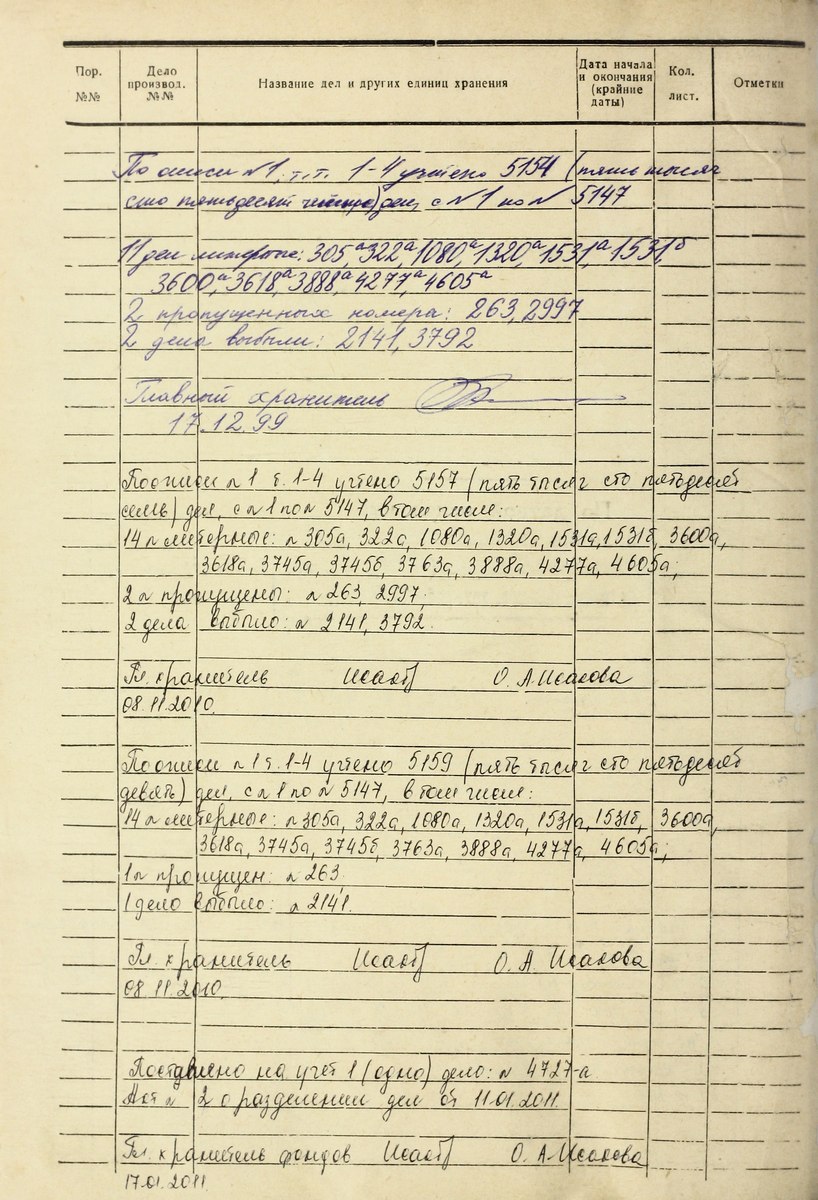 Пор. №№ Дело производ. №№ Название дел и других единиц хранения Дата начала и окончания (крайние даты) Кол. лист. Отметки
По описи №1, т.т. 1-4 учтено 5154 (пять тысяч
сто пятьдесят четыре) дел, с №1 по № 5147
11 дел литерные: 305а, 322а, 1080а, 1320а, 1531а, 1531б,
3600а, 3618а, 3888а, 4277а, 4605а
2 пропущенных номера: 263, 2997
2 дела выбыли: 2141, 3792
Главный хранитель
17.12.99
По описи №1 т. 1-4 учтено 5157 (пять тысяч сто пятьдесят
семь) дел, с №1 по № 5147, в том числе:
14 № литерные: №305а, 322а, 1080а, 1320а, 1531а, 1531б, 3600а,
3618а, 3745а, 3745б, 3763а, 3888а, 4277а, 4605а;
2 № пропущены: №263, 2997;
2 дела выбыло: № 2141, 3792.
Гл. хранитель О.А. Исакова
08.11.2010.
По описи №1 т. 1-4 учтено 5159 (пять тысяч сто пятьдесят
девять) дел, с №1 по № 5147, в том числе:
14 № литерные: №305а, 322а, 1080а, 1320а, 1531а, 1531б, 3600а,
3618а, 3745а, 3745б, 3763а, 3888а, 4277а, 4605а;
1 № пропущен: №263;
1 дело выбыло: №2141.
Гл. хранитель О.А. Исакова
08.11.2010.
Поставлено на учет 1 (одно) дело: № 4727-а
Акт № 2 о разделении дел от 11.01.2011.
Гл. хранитель фондов О.А. Исакова
17.01.2011.